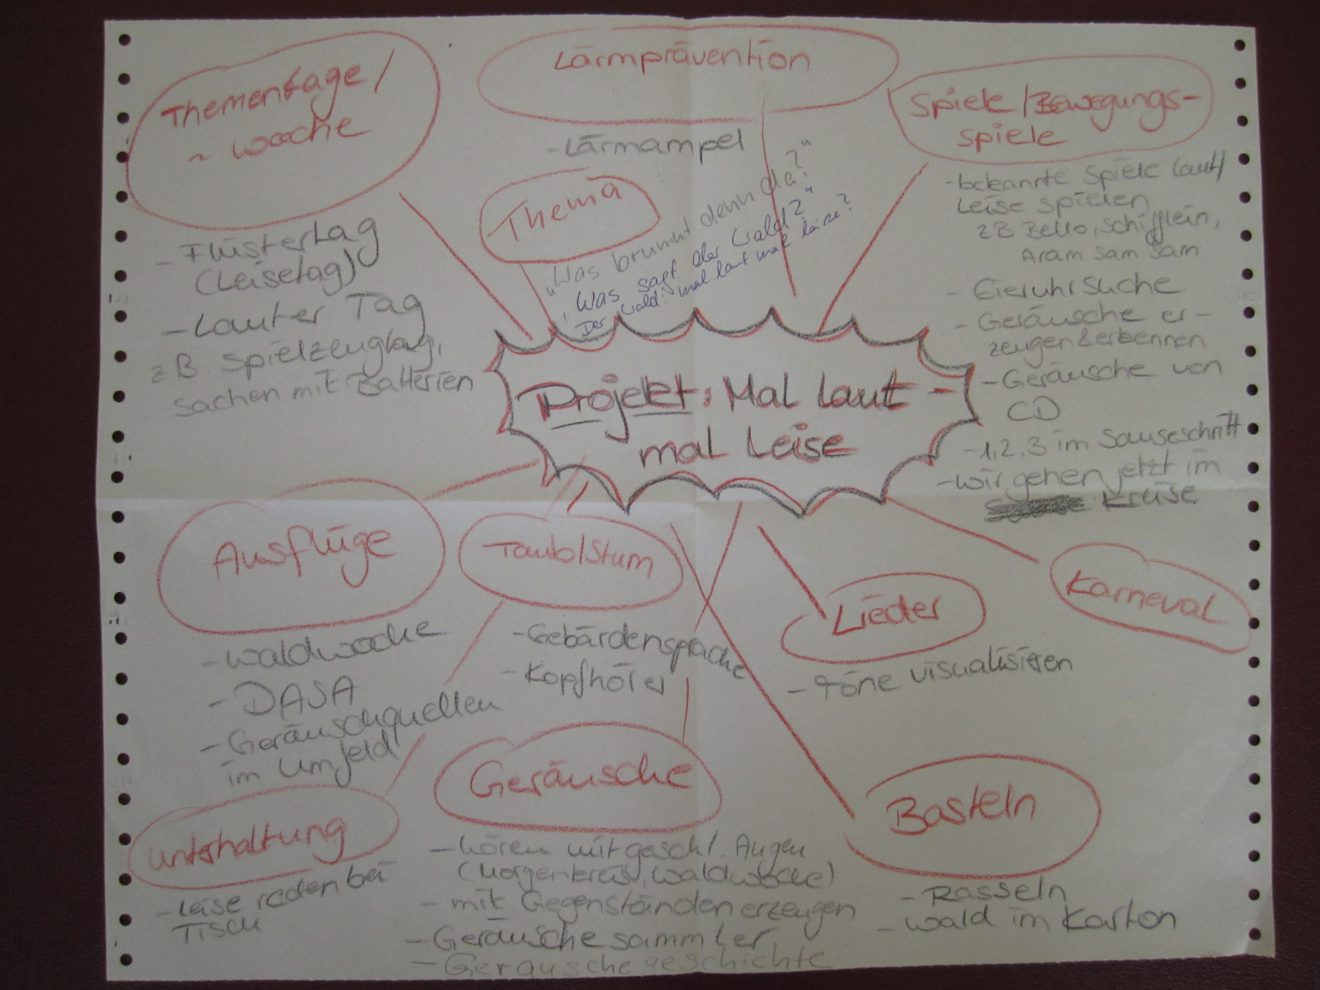 Thementage/
~ woche
- Flüstertag
(Leisetag)
- Lauter Tag
zB Spielzeugtag,
Sachen mit Batterien
Lärmprävention
- Lärmampel
Thema
"Was brummt denn da?"
"Was sagt der Wald?"
Der Wald: mal laut mal leise?
Spiele/Bewegungs-
spiele
- bekannte Spiele laut/
Leise spielen
zB Bello, Schifflein,
Aram Sam Sam
- Eieruhrsuche
- Geräusche er-
zeugen & erkennen
- Geräusche von
CD
- 1, 2, 3 im Sauseschritt
- wir gehen jetzt im
Kreise
Projekt: Mal Laut -
mal Leise
Ausflüge
- Waldwoche
- DASA
- Geräuschquellen
im Umfeld
Taub/Stum
- Gebärdensprache
- Kopfhörer
Lieder
- Töne visualisieren
Karneval
Unterhaltung
- Leise reden bei
Tisch
Geräusche
- hören mit geschl. Augen
(Morgenkreis, Waldwoche)
- mit Gegenständen erzeugen
- Geräusche sammler
- Geräuschegeschichte
Basteln
- Rasseln
- Wald im Karton